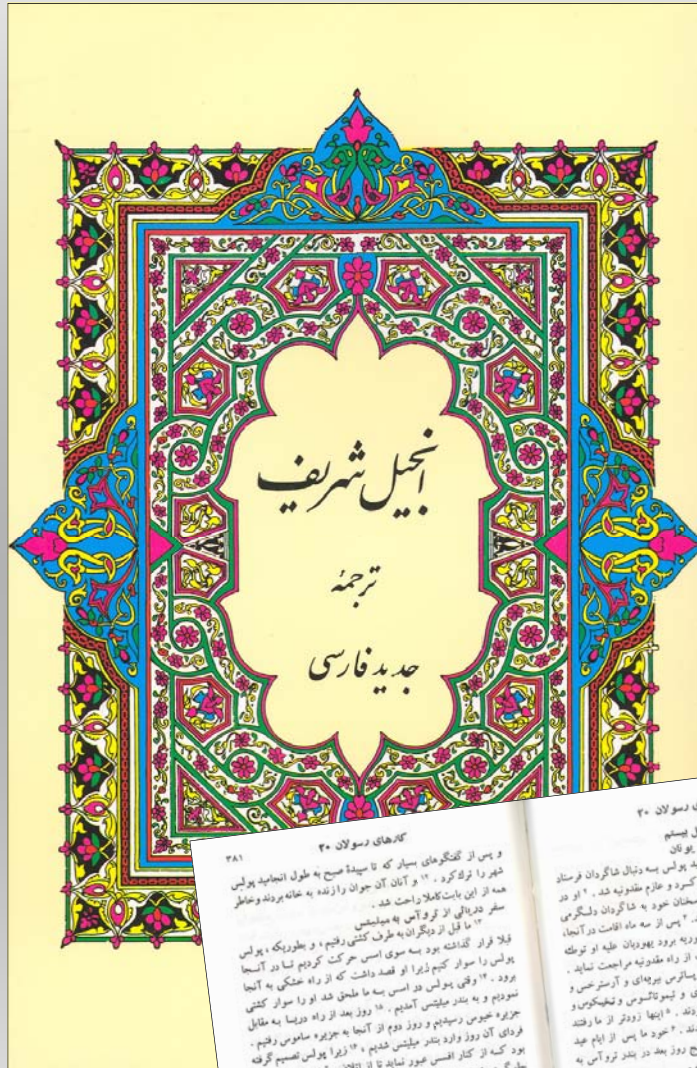 انجیل شریف
ترجمهٔ
جدید فارسی
کارهای رسولان ۲۰
۳۸۱
و پس از گفتگوهای بسیار که تا سپیدهٔ صبح به طول انجامید پولس
شهر را ترک کرد . ۱۲ و آنان آن جوان را زنده به خانه بردند و خاطر
همه از این بابت کاملا راحت شد .
سفر دریائی از تروآس به میلیتس
۱۳ ما قبل از دیگران به طرف کشتی رفتیم ، و بطوریکه ، پولس
قبلا قرار گذاشته بود بـه سوی اسس حرکت کردیم تـا در آنـجا
پولس را سوار کنیم زیرا او قصد داشت که از راه خشکی به آنجا
برود . ۱۴ وقتی پولس در اسس بـه ما ملحق شد او را سوار کشتی
نمودیم و به بندر میلیتس آمدیم . ۱۵ روز بعد از راه دریـا بـه مقابل
جزیره خیوس رسیدیم و روز دوم از آنجا به جزیره ساموس رفتیم .
فردای آن روز وارد بندر میلیتس شدیم ، ۱۶ زیرا پولس تصمیم گرفته
بود کـه از کنار افسس عبور نماید تا از
رسولان ۲۰
بیستم
یونان
پولس بـه دنبال شاگردان فرستاد
کـرد و عازم مقدونیه شد . ۲ او در
سخنان خود به شاگردان دلـگرمی
۳ پس از سه ماه اقامت در آنجا،
سوریه برود یهودیان علیه او توطئه
از راه مقدونیه مراجعت نماید .
سوپاترس بیریه‌ای و آرسترخس و
و تیموتائـوس و تیخیکوس و
۵ اینها زودتر از ما رفتند
۶ خود ما پس از ایام عید
پنج روز بعد در بندر تروآس به